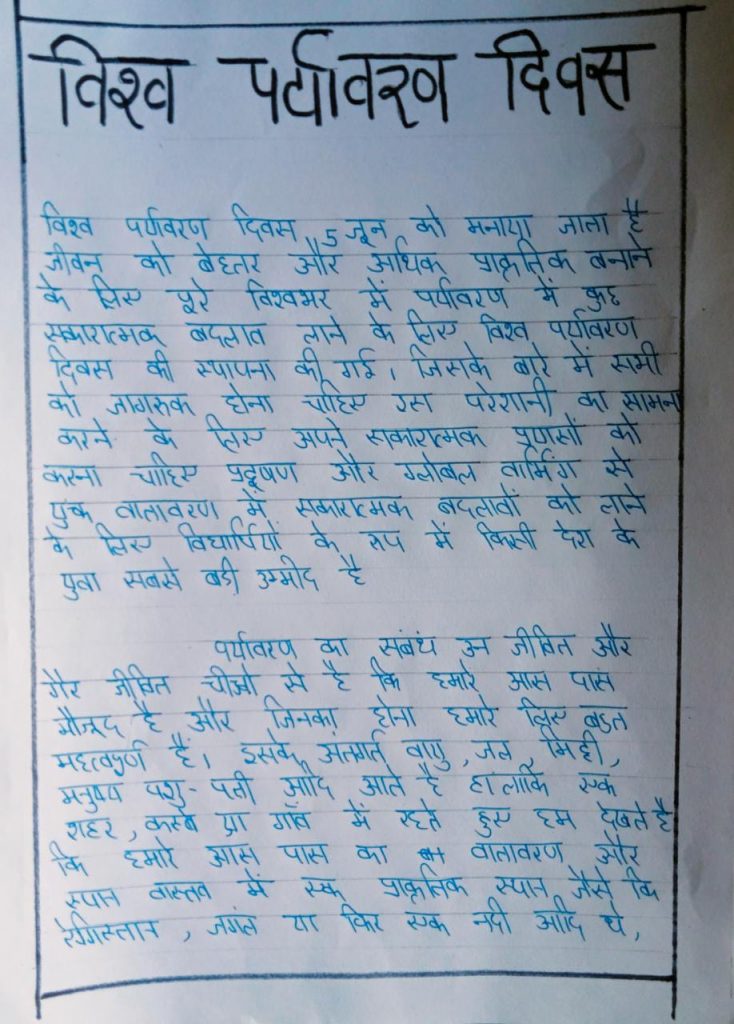 विश्व पर्यावरण दिवस
विश्व पर्यावरण दिवस 5 जून को मनाया जाता है
जीवन को बेहतर और अधिक प्राकृतिक बनाने
के लिए पूरे विश्वभर में पर्यावरण में कुछ
सकारात्मक बदलाव लाने के लिए विश्व पर्यावरण
दिवस की स्थापना की गई। जिसके बारे में सभी
को जागरुक होना चाहिए इस परेशानी का सामना
करने के लिए अपने सकारात्मक प्रयासों को
करना चाहिए प्रदूषण और ग्लोबल वार्मिंग से
युक्त वातावरण में सकारात्मक बदलावों को लाने
के लिए विद्यार्थियों के रूप में किसी देश के
युवा सबसे बडी उम्मीद है
पर्यावरण का सबंध उन जीवित और
गैर जीवित चीजो से है कि हमारे आस पास
मौजूद है और जिनका होना हमारे लिए बहुत
महत्वपूर्ण है। इसके अंतगर्त वायु, जल, मिट्टी,
मनुष्य पशु-पक्षी आदि आते है हालाकि एक
शहर, कस्बे या गाँव में रहते हुए हम देखते है
कि हमारे आस पास का वातावरण और
स्थान वास्तव में एक प्राकृतिक स्थान जैसे कि
रेगिस्तान, जगंल या फिर एक नदी आदि थे,